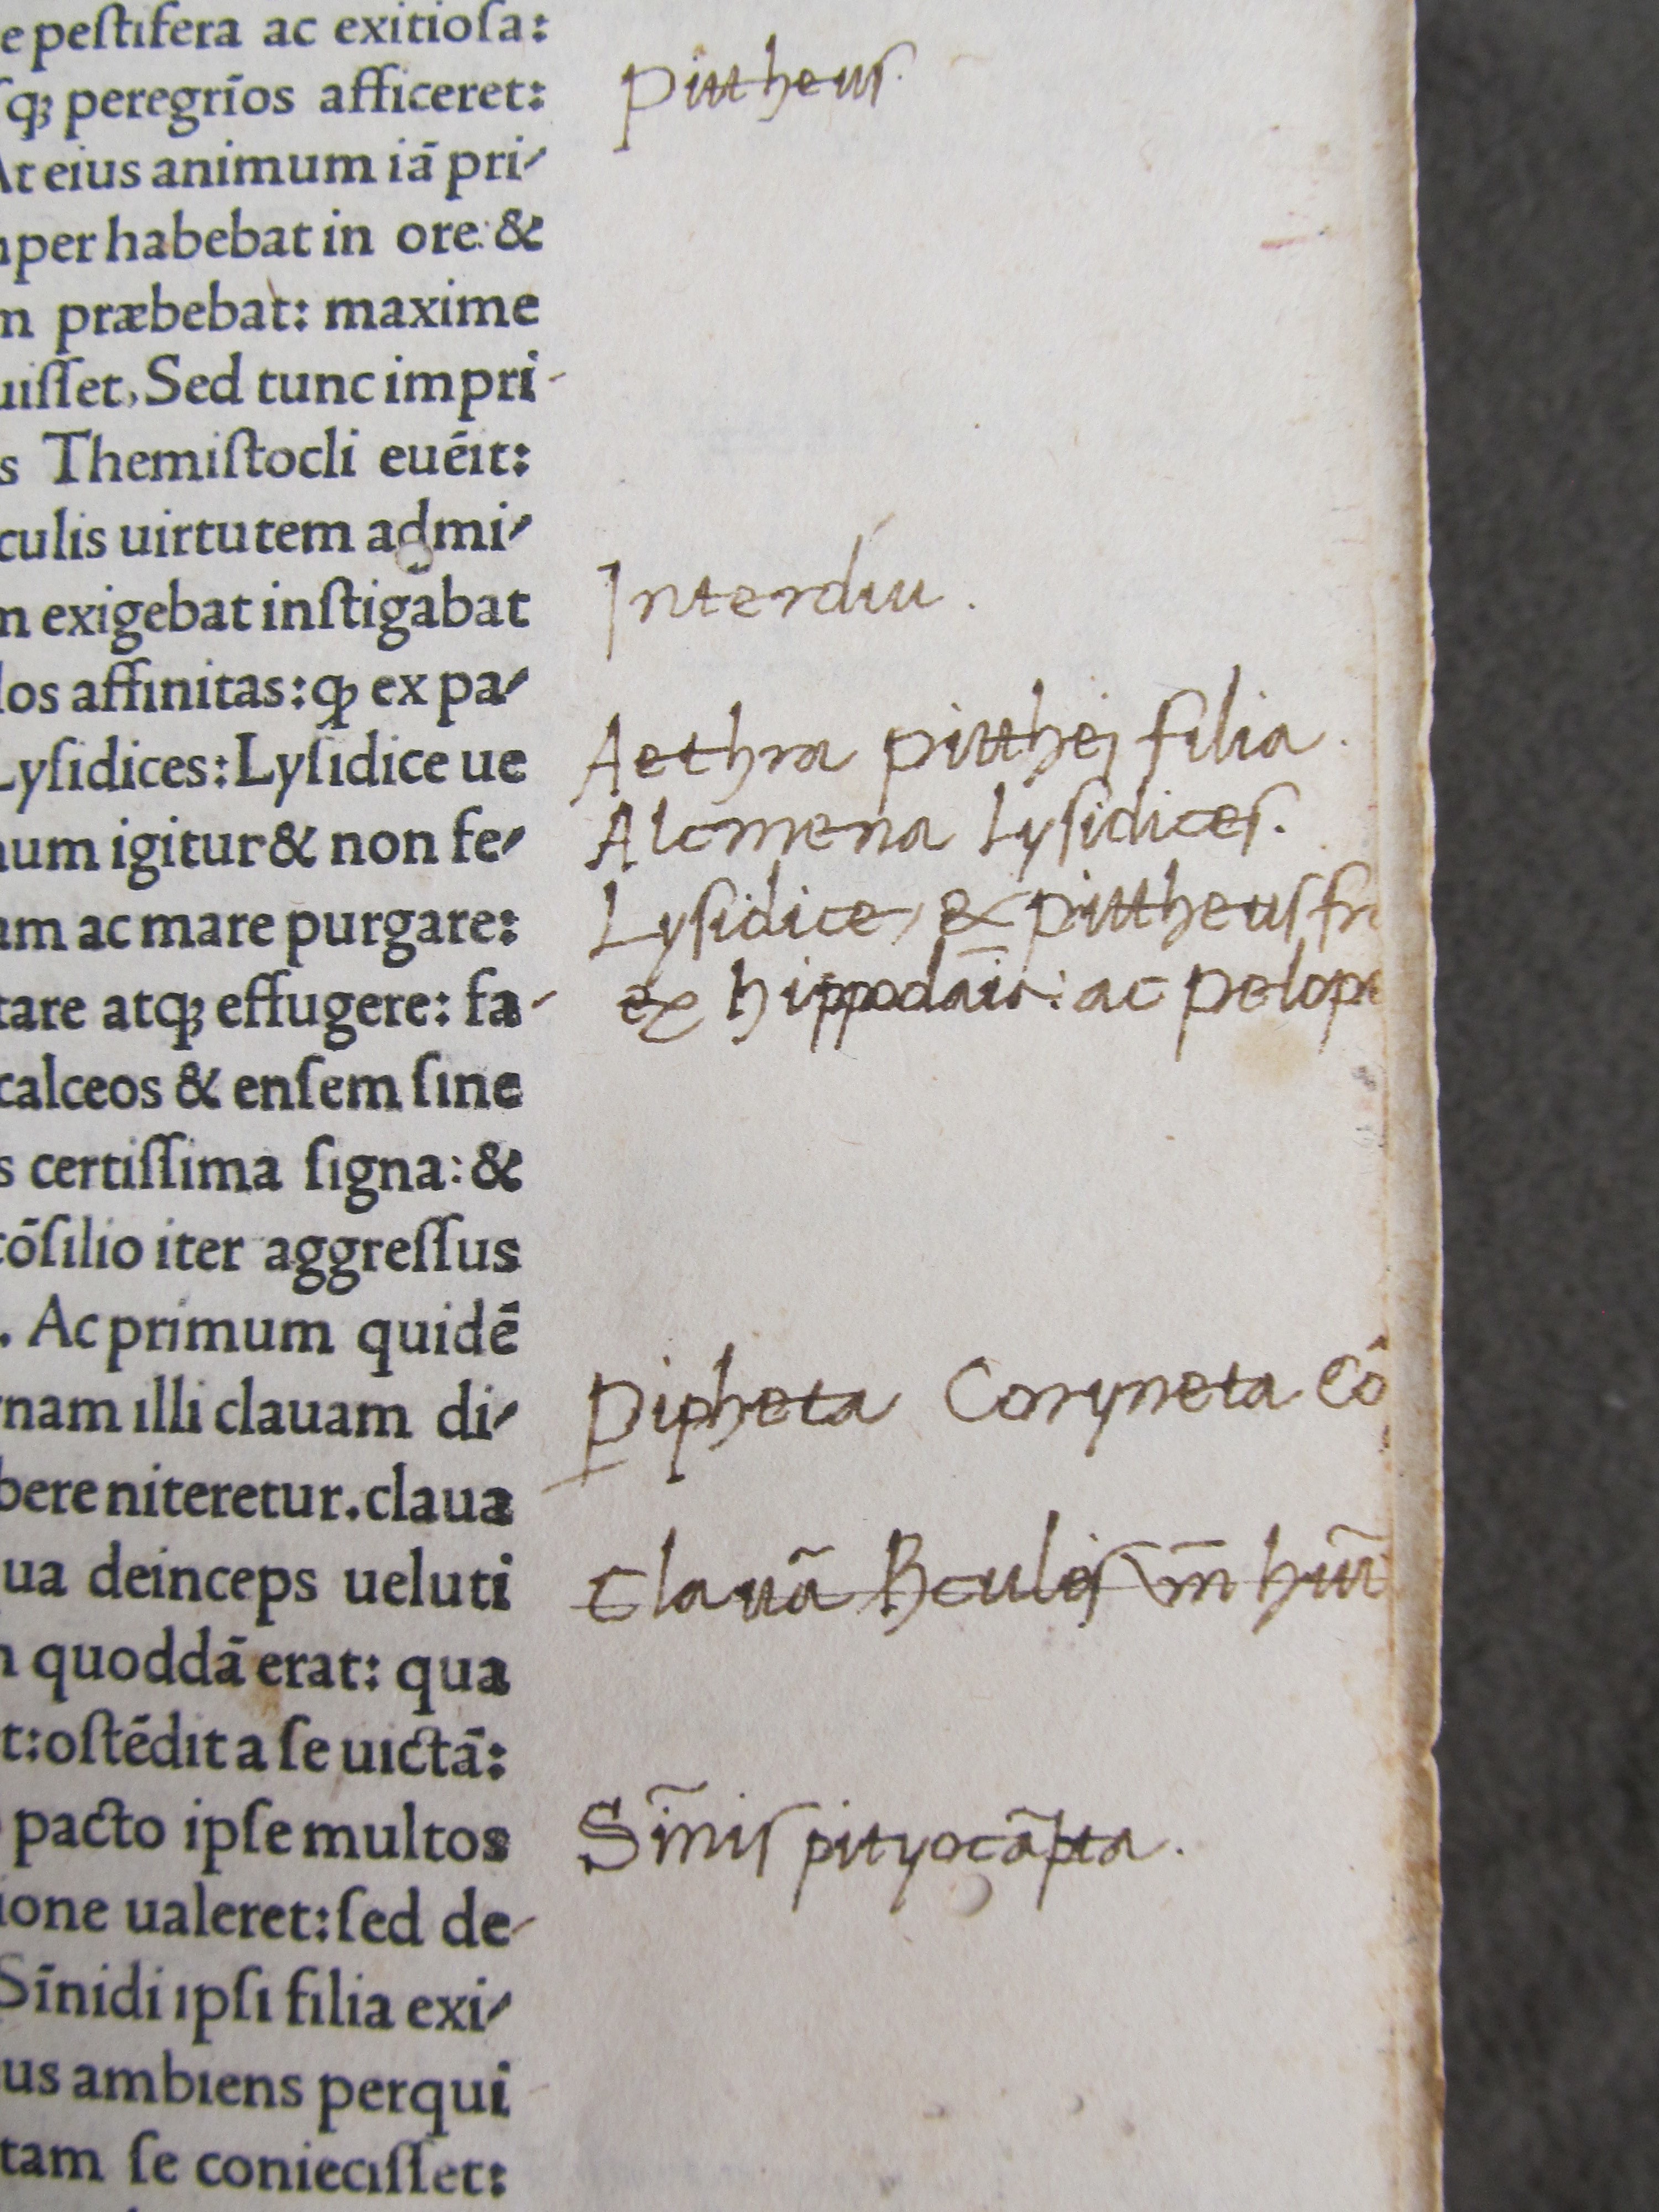 e peſtifera ac exitioſa:
ſq; peregrīos afficeret:
At eius animum iā pri-
nper habebat in ore: &
m præbebat: maxime
uiſſet. Sed tunc impri
s Themiſtocli euēit:
culis uirtutem admi-
n exigebat inſtigabat
los affinitas: ꝙ ex pa-
Lyſidices: Lyſidice ue
num igitur & non fe-
am ac mare purgare:
tare atq; effugere: fa
calceos & enſem ſine
s certiſſima ſigna: &
cōſilio iter aggreſſus
. Ac primum quidē
rnam illi clauam di-
bere niteretur. claua
ua deinceps ueluti
n quoddā erat: qua
t: oſtēdit a ſe uictā:
pacto ipſe multos
ione ualeret: ſed de
Sīnidi ipſi filia exi-
us ambiens perqui
tam ſe
conieciſſet:
Pittheus.
Interdiu.
Aethra pitthej filia.
Alcmena Lyſidices.
Lyſidice, & pittheus fr
ex hippodāia: ac pelope
Pipheta Coryneta Cō
Clauā
Sīnis pityocāpta.